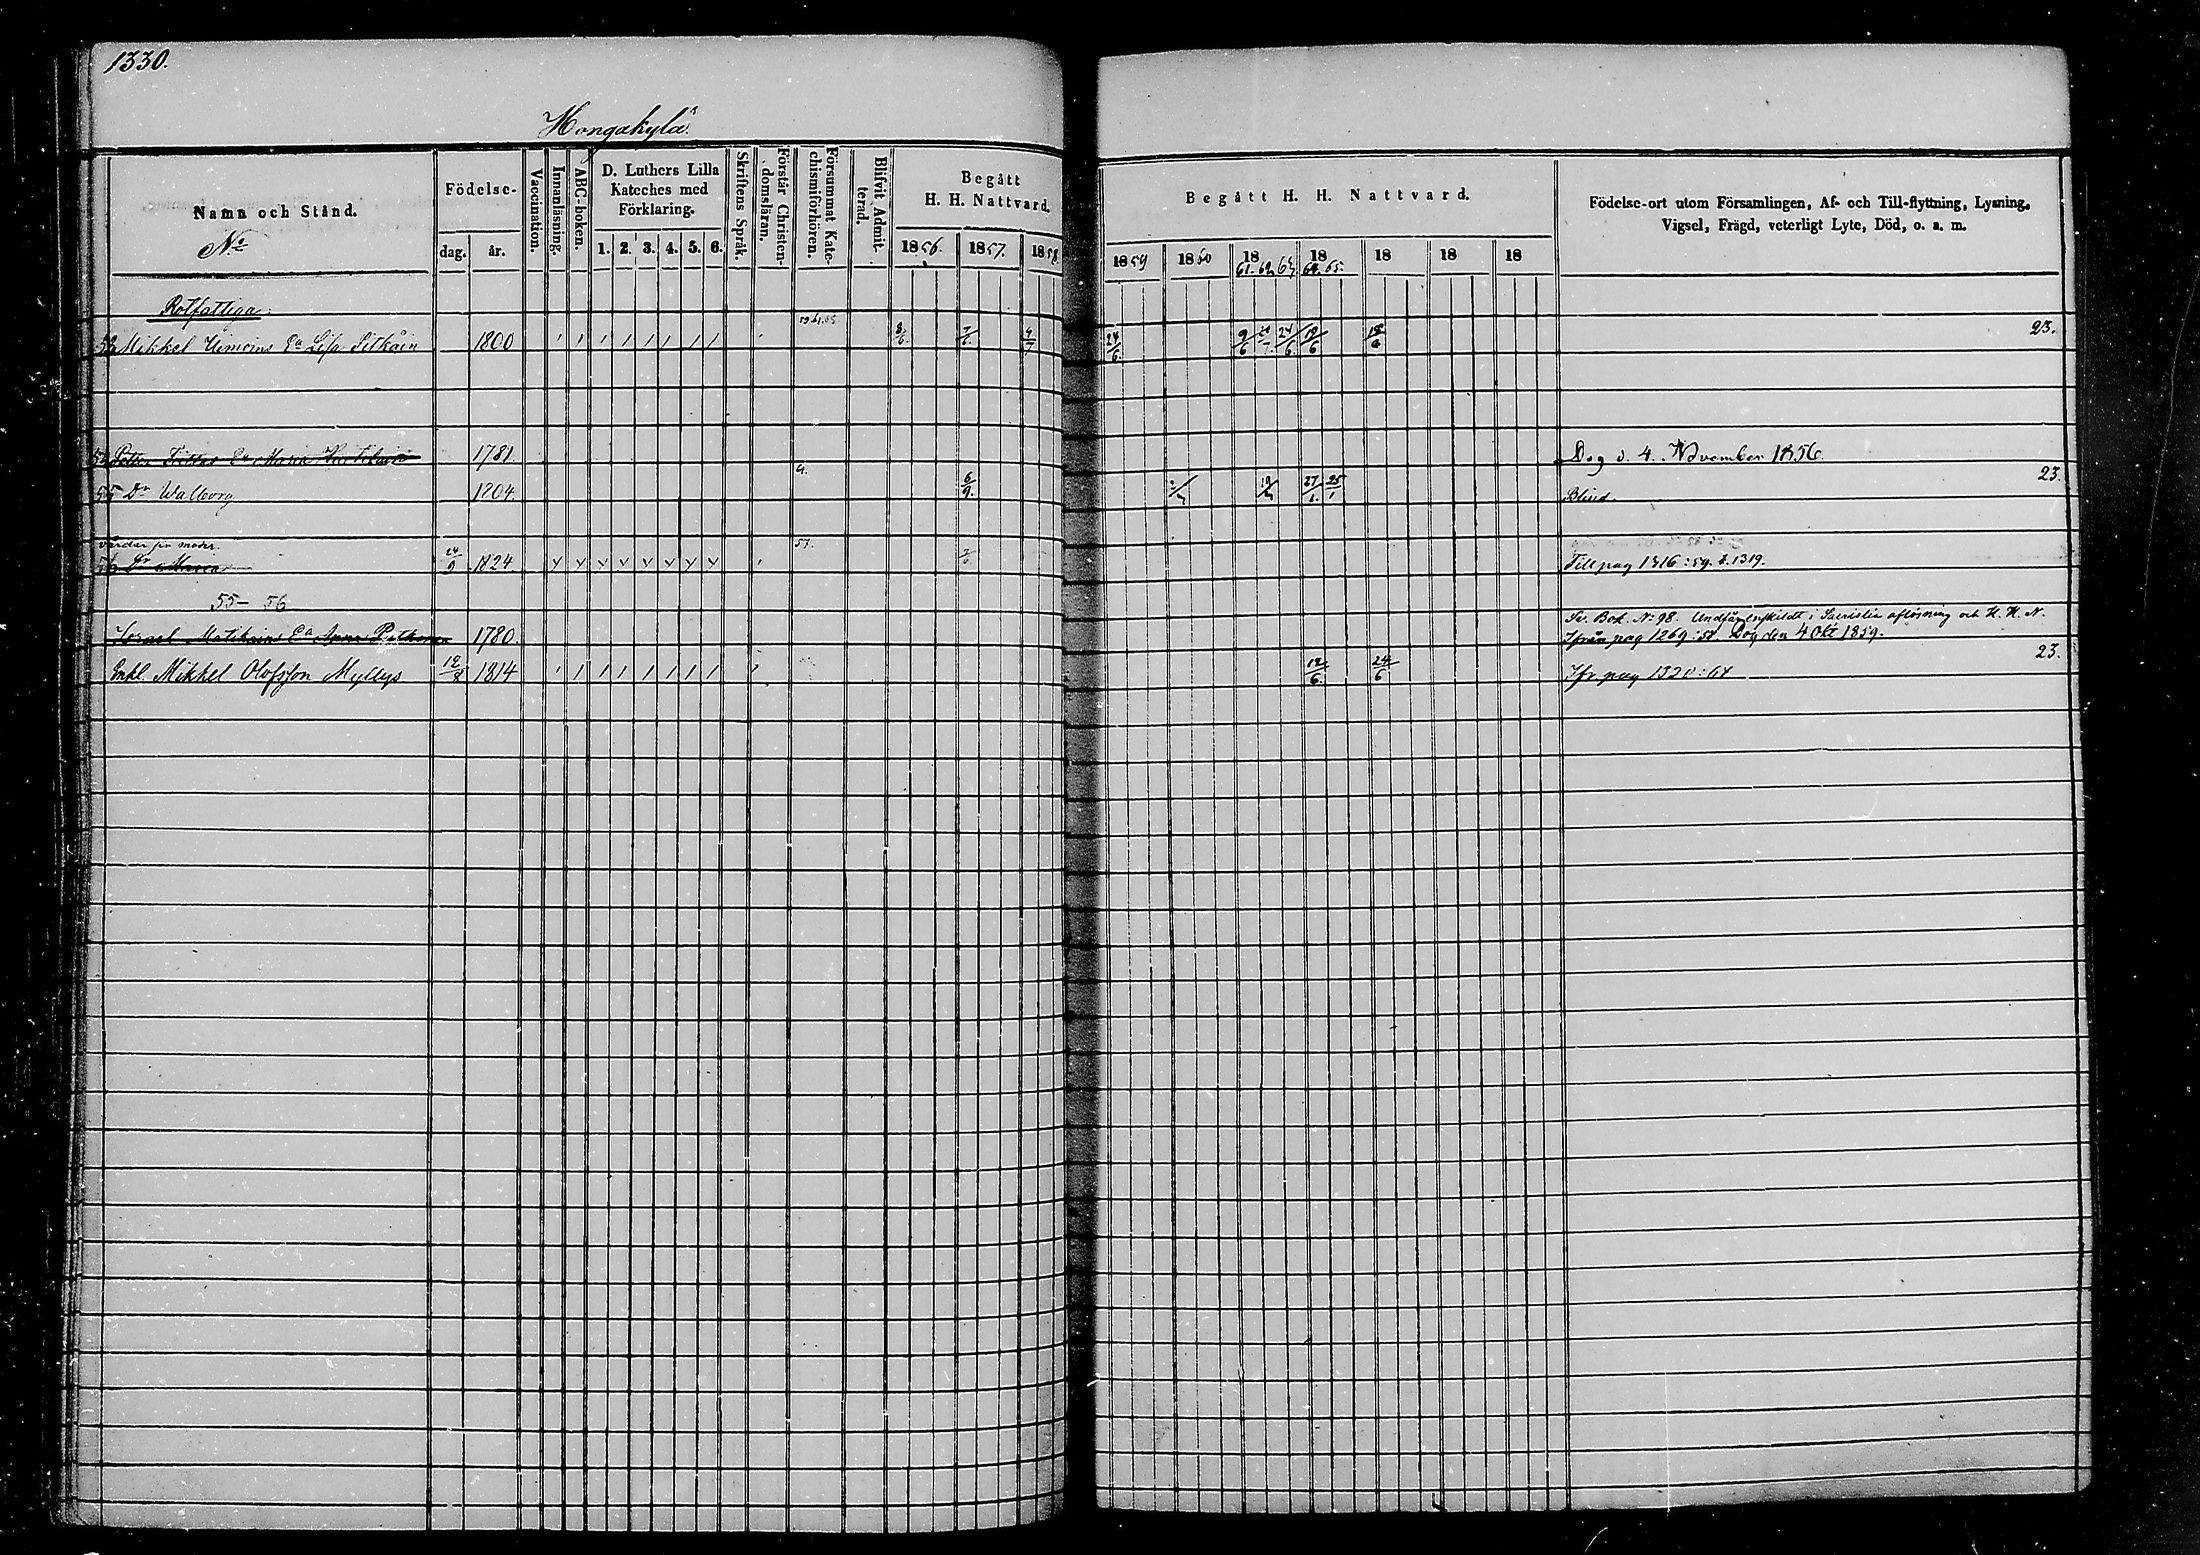 1330.
Hongakylä.
Namn och Stånd.
No
Födelse-
dag. år.
Vaccination.
Innanläsning.
ABC-boken.
D. Luthers Lilla
Kateches med
Förklaring.
1. 2. 3. 4. 5. 6.
Skriftens Språk.
Förstår Christen-
domsläran.
Försummat Kate-
chismiförhören.
Blifvit Admit-
terad.
Begått
H. H. Nattvard.
1856. 1857. 1858
Begått H. H. Nattvard.
1859 1860 18 61. 62 63 18 64. 65. 18 18 18
Födelse-ort utom Församlingen, Af- och Till-flyttning, Lysning,
Vigsel, Frägd, veterligt Lyte, Död, o. a. m.
Rotfattiga:
Mikkel Ea Lisa 1800 8/6. 24/6. 9/6 24/6 19/6 23.
Petter Ea Maria 1781. Dog d. 4. November 1856.
55 Dr Walborg 1804. 4. 6/9. 27/1. 25/1 Blind. 23.
Vårdar sin moder.
56 Dr Maria 24/9 1824 57. Till pag 1316:59. & 1319.
55 - 56
Israel Ea Anna 1780. Se. Bok. No 98. i aflösning och H. H. N.
Ifrån pag 1269: Dog den 4 Okt 1859.
Enkl. Mikkel Olofsson Myllys 1814 19/6. 24/6 Ifr. pag 1320:64 23.